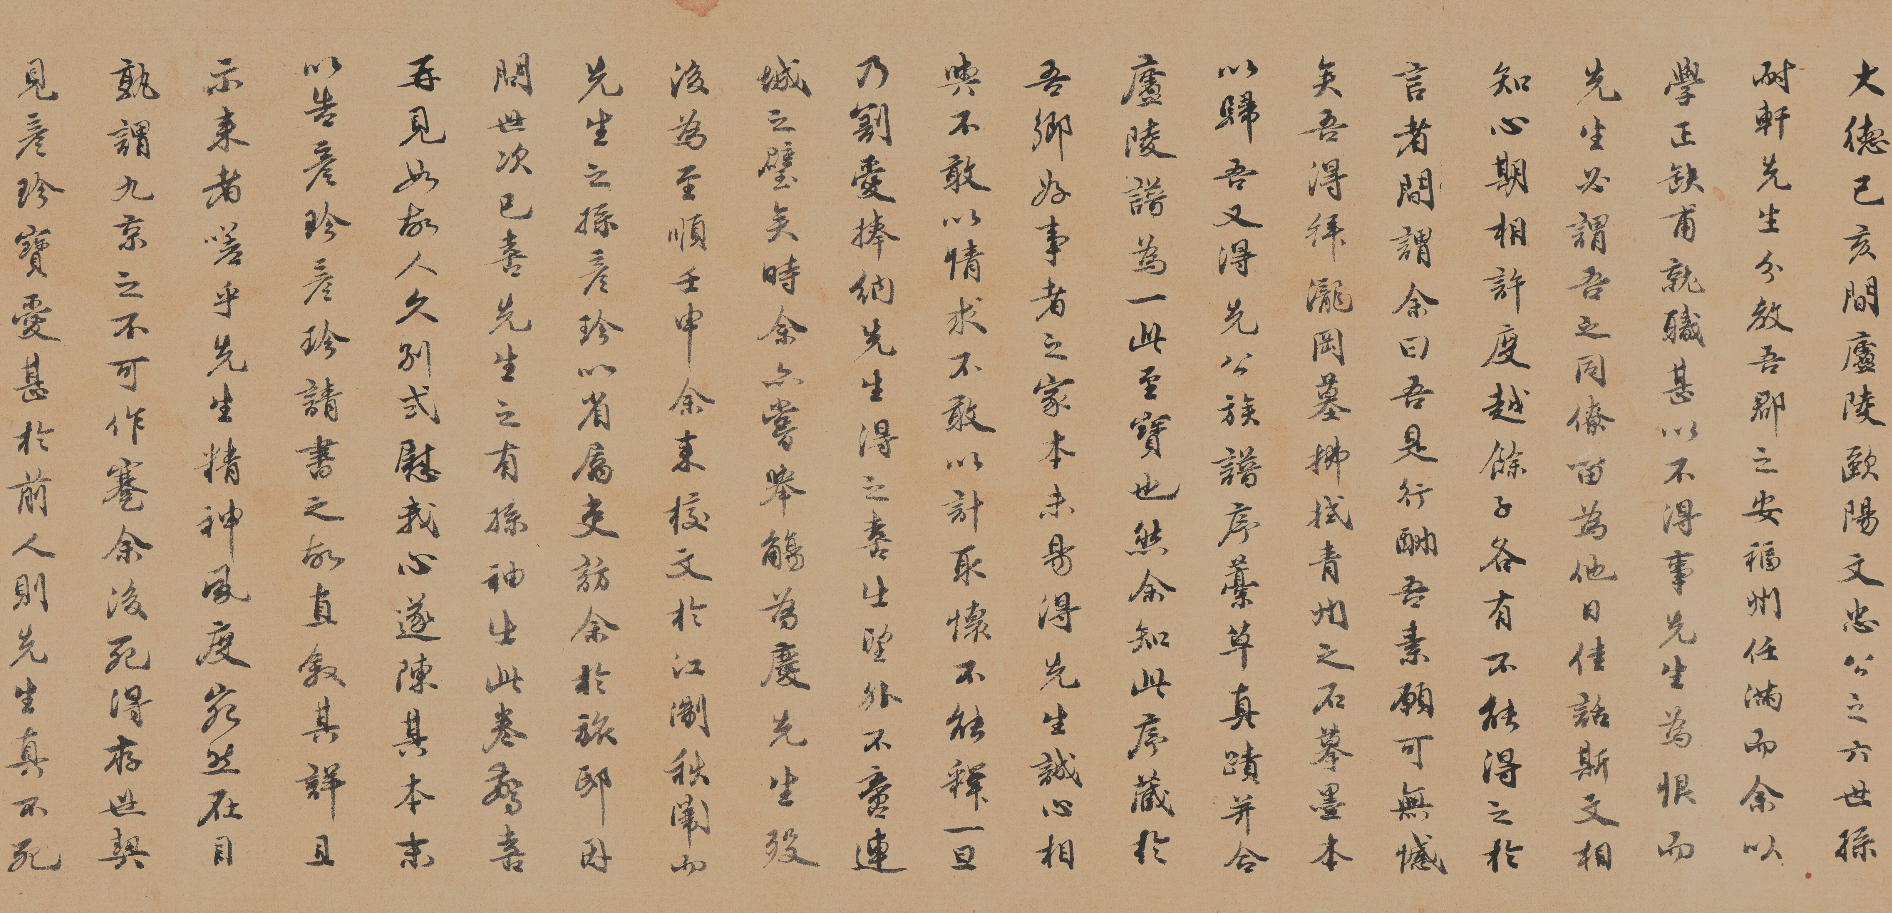 大德己亥間廬陵歐陽文忠公之六世孫
耐軒先生分教吾郡之安福州任滿而余以
學正缺甫就職甚以不得事先生為恨而
先生必謂吾之同僚留為他日佳話斯文相
知心期相許度越餘子各有不能得之於
言者間謂余曰吾是行酬吾素願可無憾
矣吾得拜瀧岡墓拂拭青州之石摹墨本
以歸吾又得先公族譜序藁草真蹟并合
廬陵譜為一此至寶也然余知此序藏於
吾鄉好事者之家本末易得先生誠心相
與不敢以情求不敢以計取懷不能釋一旦
乃割愛捧納先生得之喜出望外不啻連
城之璧矣時余亦嘗舉觴為慶先生歿
後為至順壬申余來校文於江浙秋闈而
先生之孫彥珍以省屬吏訪余於旅邸因
問世次已喜先生之有孫袖出此卷驚喜
再見如故人久別式慰我心遂陳其本末
以告彥珍彥珍請書之故直敘其詳且
示來者嗟乎先生精神風度宛然在目
孰謂九京之不可作蹇余後死得存世契
見彥珍寶愛甚於前人則先生真不死